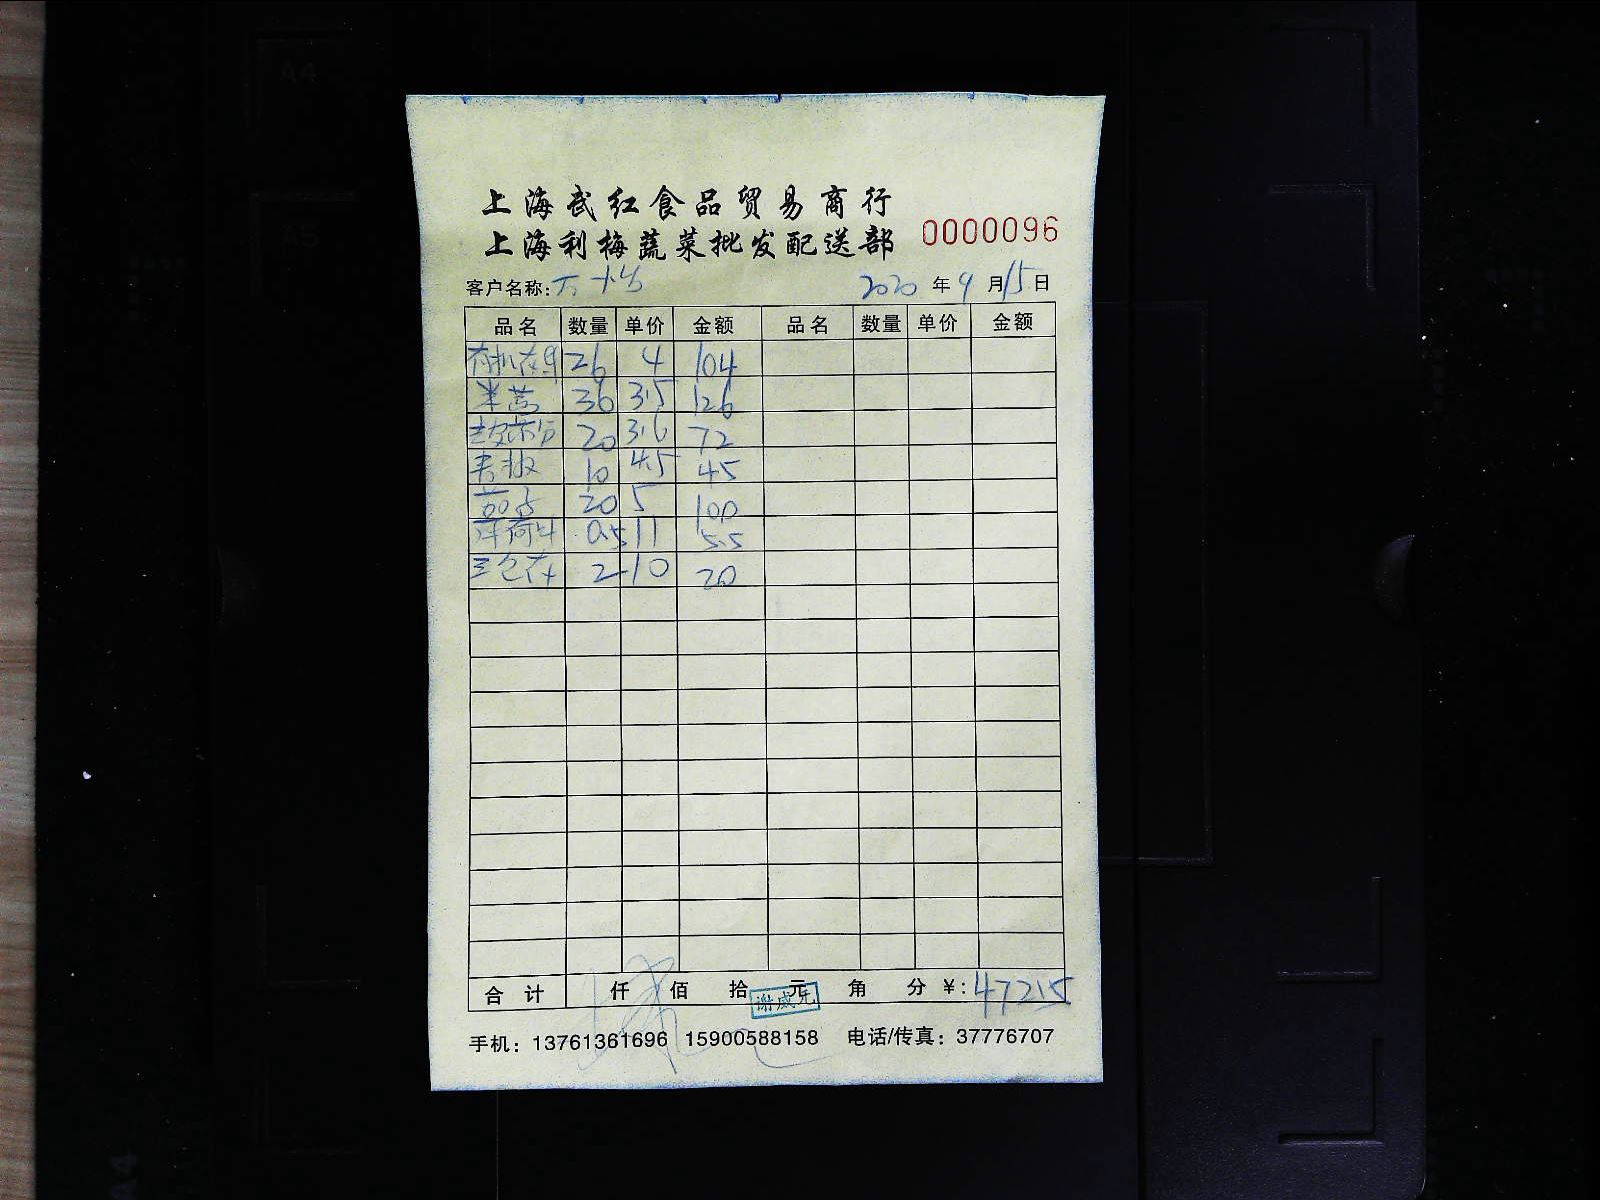 上海武红食品贸易商行
上海利梅蔬菜批发配送部 0000096
客户名称: 2020 年 9 月 15 日
品名 数量 单价 金额 品名 数量 单价 金额
有机花菜 26 4 104
米苋 36 3.5 126
20 3.6 72
青椒 10 4.5 45
茄子 20 5 100
0.5 11 5.5
三色 2 10 20
合计 仟 佰 拾 元 角 分 ¥: 472.5
谢威先
手机: 13761361696 15900588158 电话/传真: 37776707
A4
A5
A4